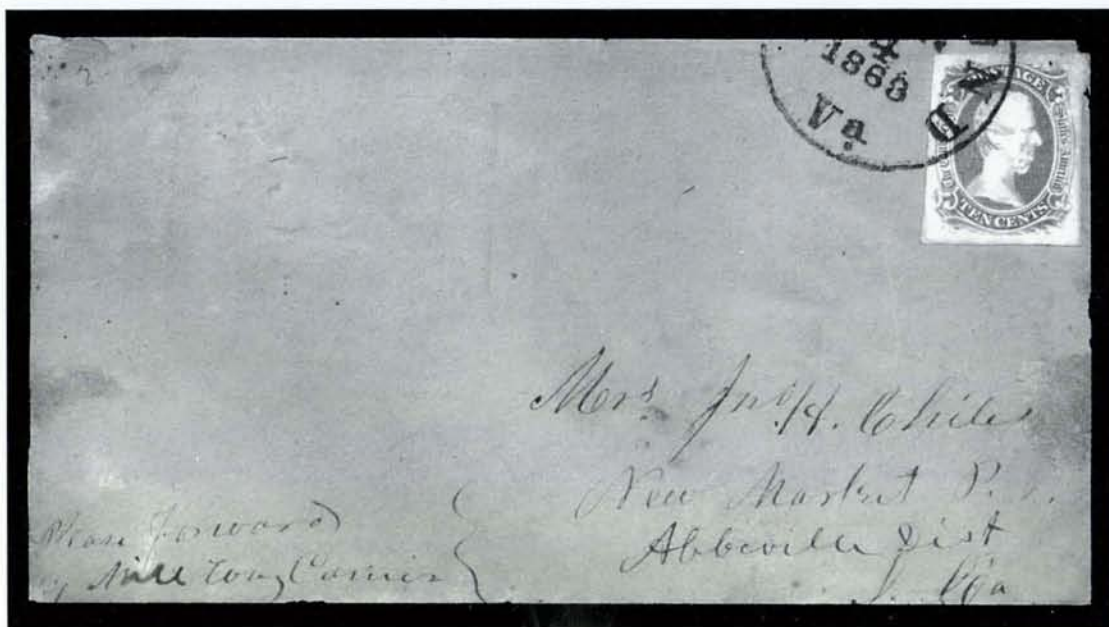 1863
Va D
POSTAGE
TEN CENTS
Mrs. Jno. H. Chiles
New Market P.
Abbeville Dist
S. Ca
Please forward
by Carrier